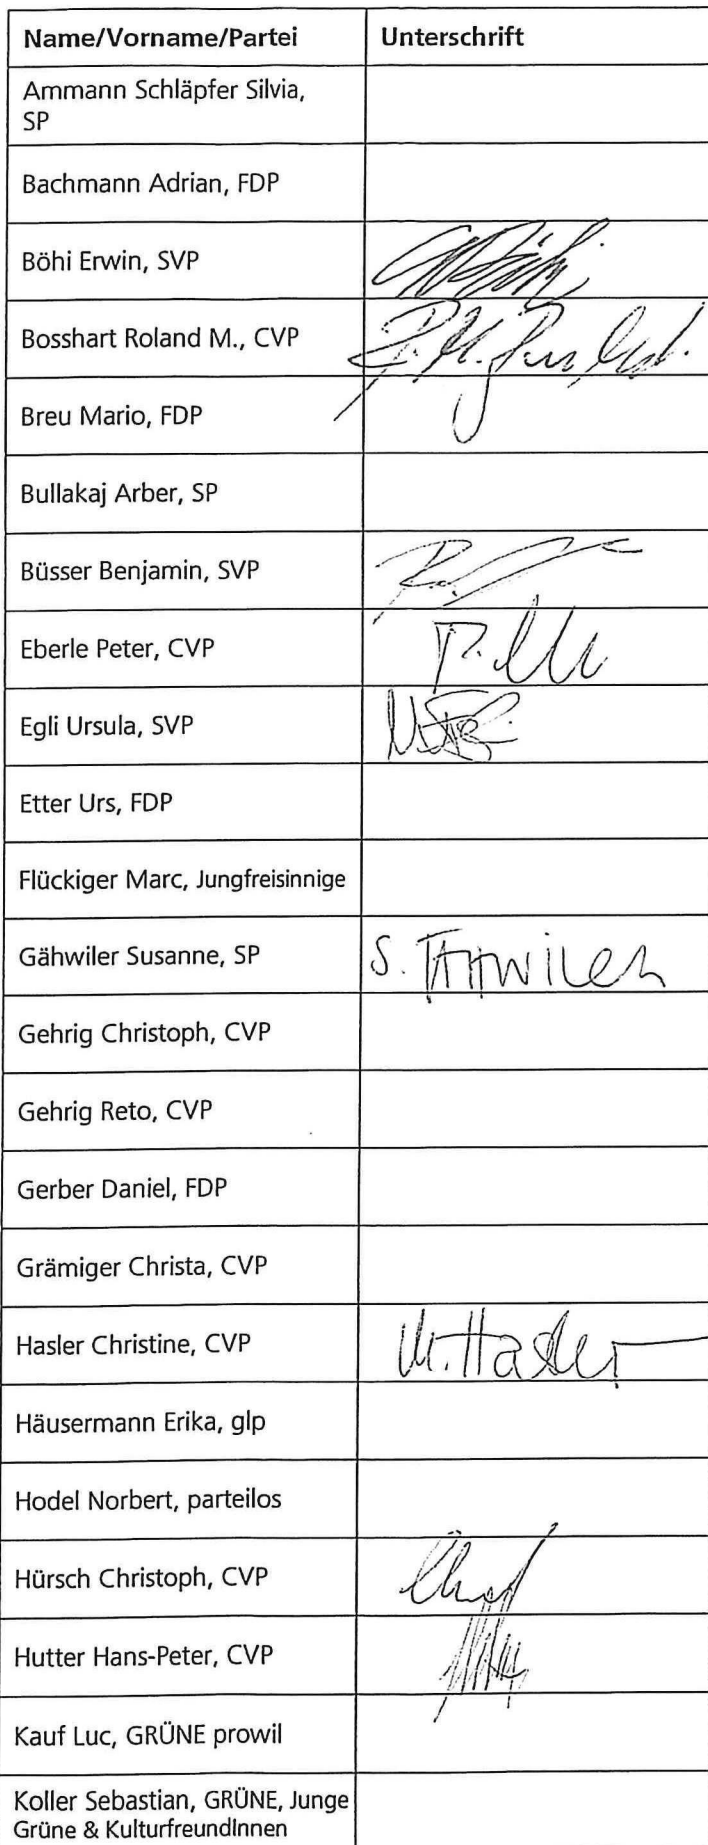 Name/Vorname/Partei Unterschrift
Ammann Schläpfer Silvia,
SP
Bachmann Adrian, FDP
Böhi Erwin, SVP
Bosshart Roland M., CVP
Breu Mario, FDP
Bullakaj Arber, SP
Büsser Benjamin, SVP
Eberle Peter, CVP
Egli Ursula, SVP
Etter Urs, FDP
Flückiger Marc, Jungfreisinnige
Gähwiler Susanne, SP S.
Gehrig Christoph, CVP
Gehrig Reto, CVP
Gerber Daniel, FDP
Grämiger Christa, CVP
Hasler Christine, CVP Hasler
Häusermann Erika, glp
Hodel Norbert, parteilos
Hürsch Christoph, CVP
Hutter Hans-Peter, CVP
Kauf Luc, GRÜNE prowil
Koller Sebastian, GRÜNE, Junge
Grüne & KulturfreundInnen